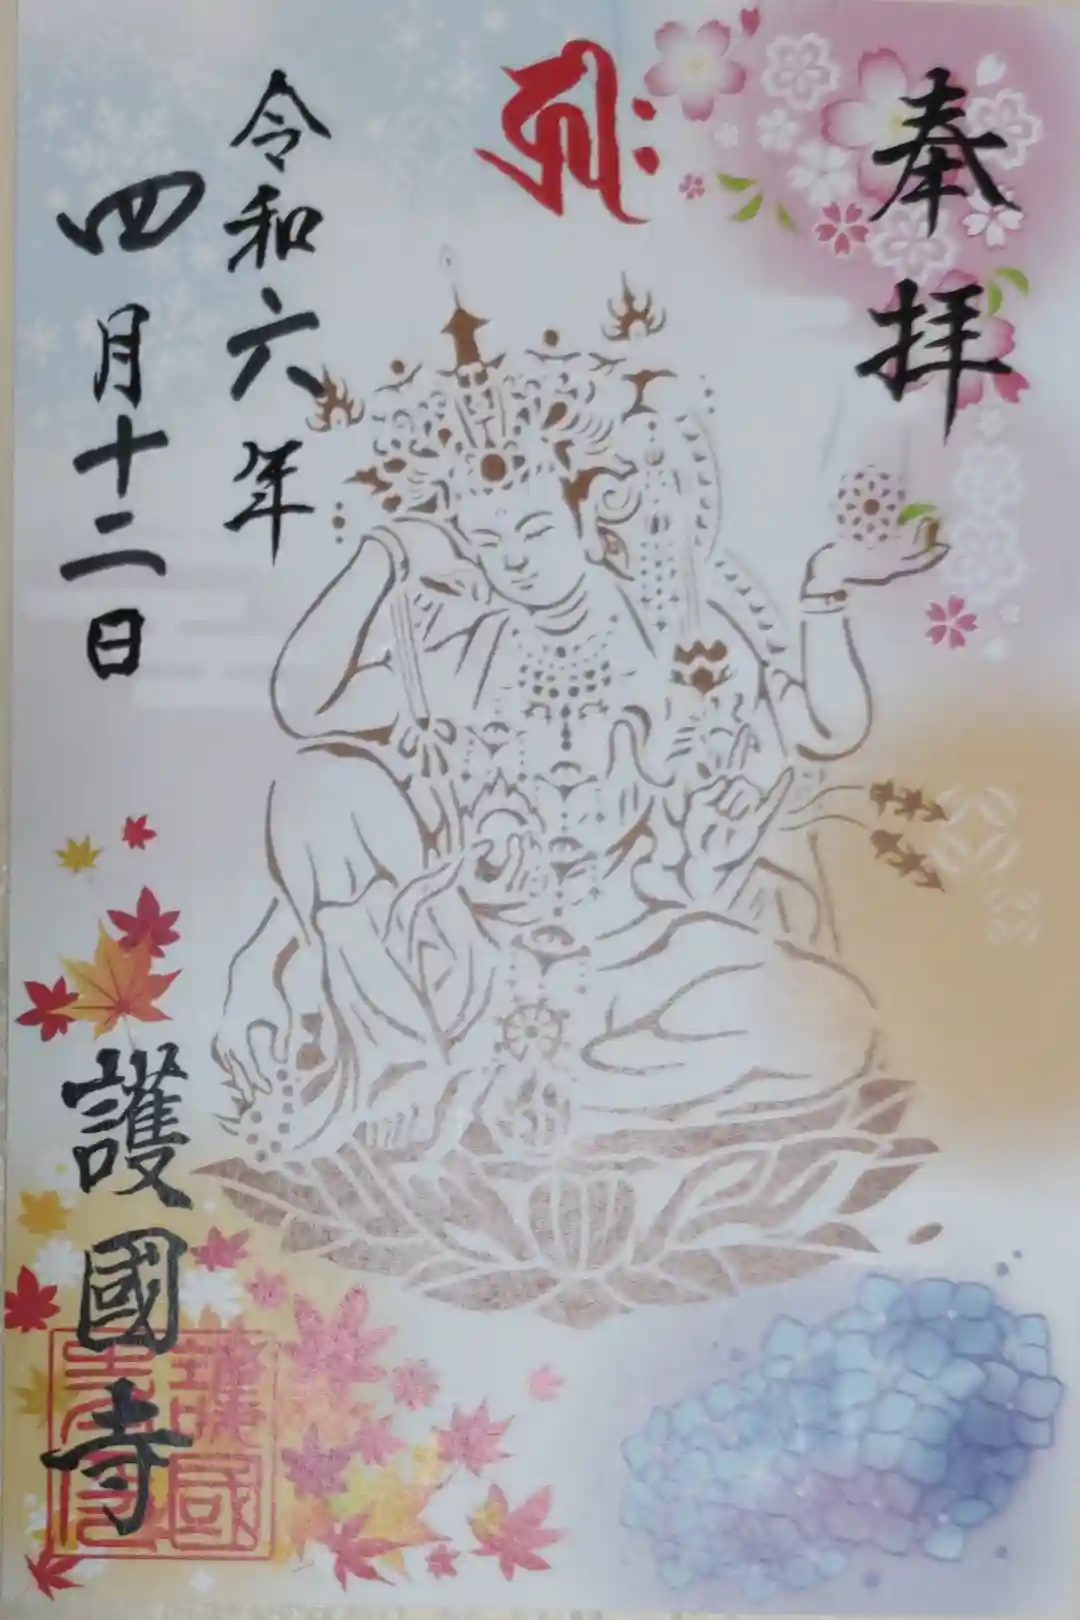 奉拝
ह्रीः
令和六年
四月十二日
護國寺
護國
寺印